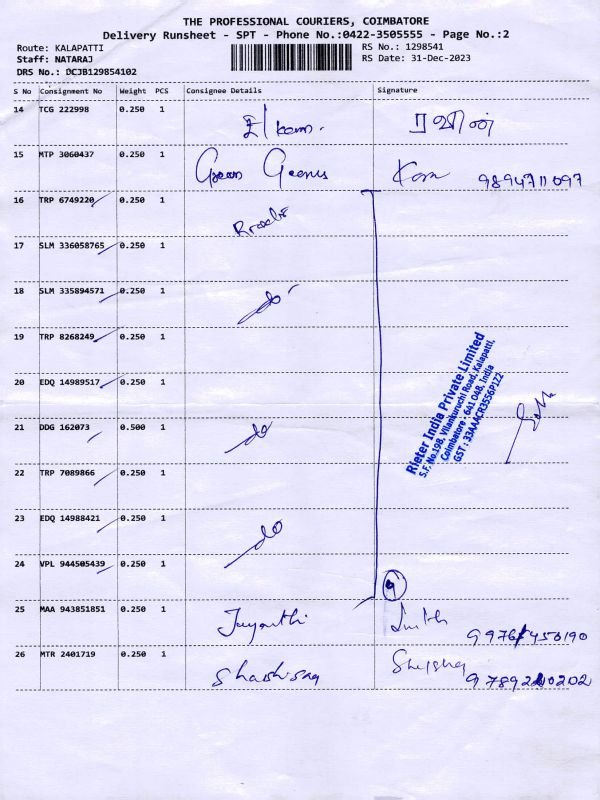 THE PROFESSIONAL COURIERS, COIMBATORE
Delivery Runsheet - SPT - Phone No.:0422-3505555 - Page No.:2
Route: KALAPATTI
Staff: NATARAJ
DRS No.: DCJB129854102
RS No.: 1298541
RS Date: 31-Dec-2023
S No Consignment No Weight PCS Consignee Details Signature
14 TCG 222998 0.250 1
15 MTP 3060437 0.250 1 9894711097
16 TRP 6749220 0.250 1
17 SLM 336058765 0.250 1
18 SLM 335894571 0.250 1 do
19 TRP 8268249 0.250 1
20 EDQ 14989517 0.250 1
21 DDG 162073 0.500 1 do
22 TRP 7089866 0.250 1
23 EDQ 14988421 0.250 1 do
24 VPL 944505439 0.250 1
9
Rieter India Private Limited
S.F. No.198, Vilankuruchi Road, Kalapatti,
Coimbatore - 641 048, India
GST : 33AAACR3556P1Z2
25 MAA 943851851 0.250 1 Jayanthi
26 MTR 2401719 0.250 1